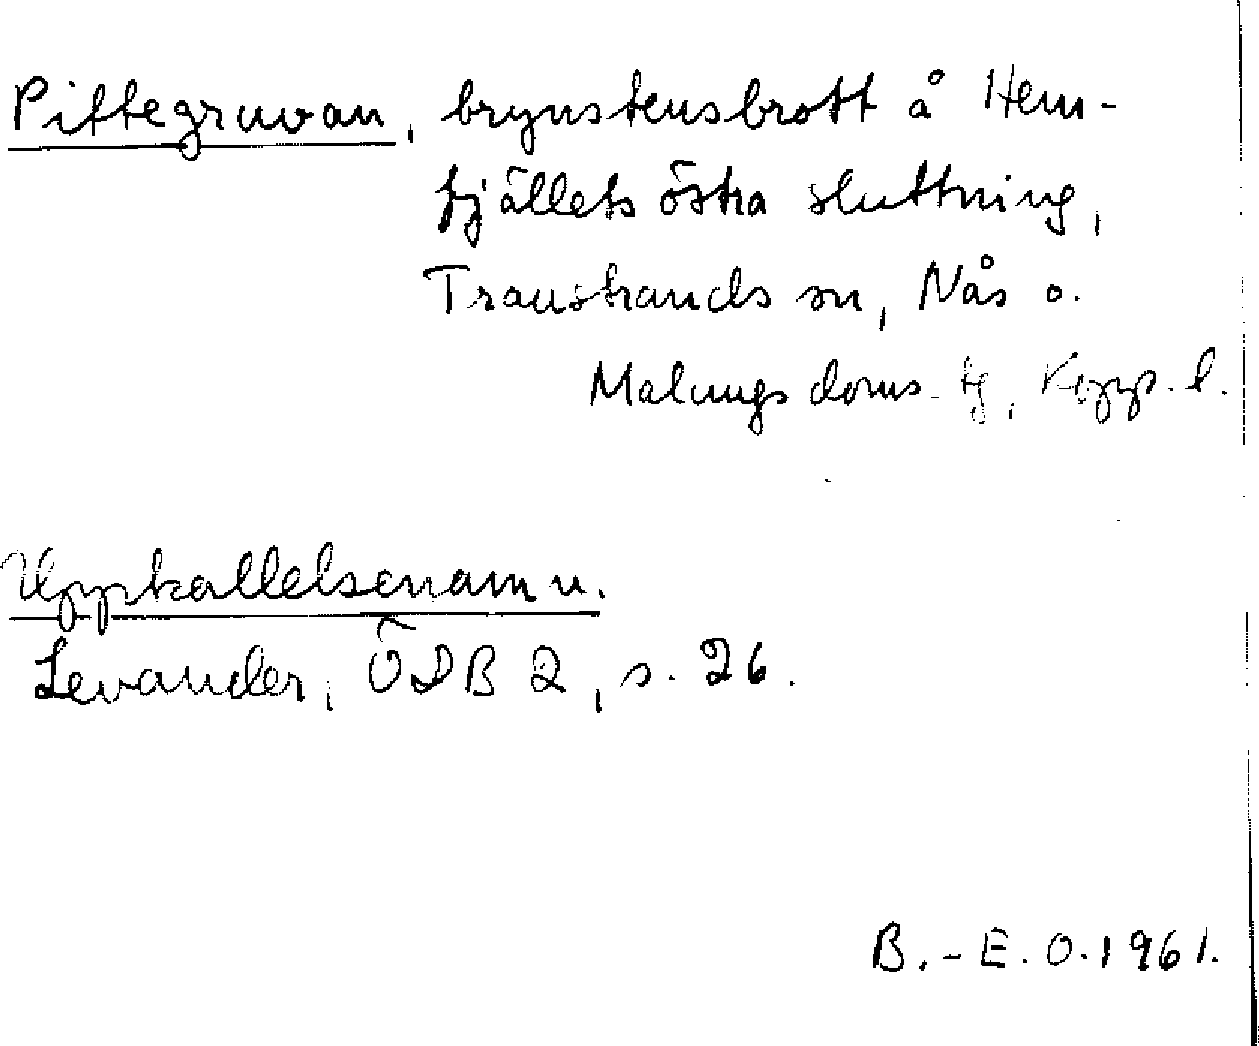 Pittegruvan, brynstensbrott å Hem-
fjällets östra sluttning,
Transtrands sn, Nås o.
Malungs doms. tg, Kopp. l.
Uppkallelsenamn.
Levander, ÖDB 2, s. 26.
B.-E. O. 1961.